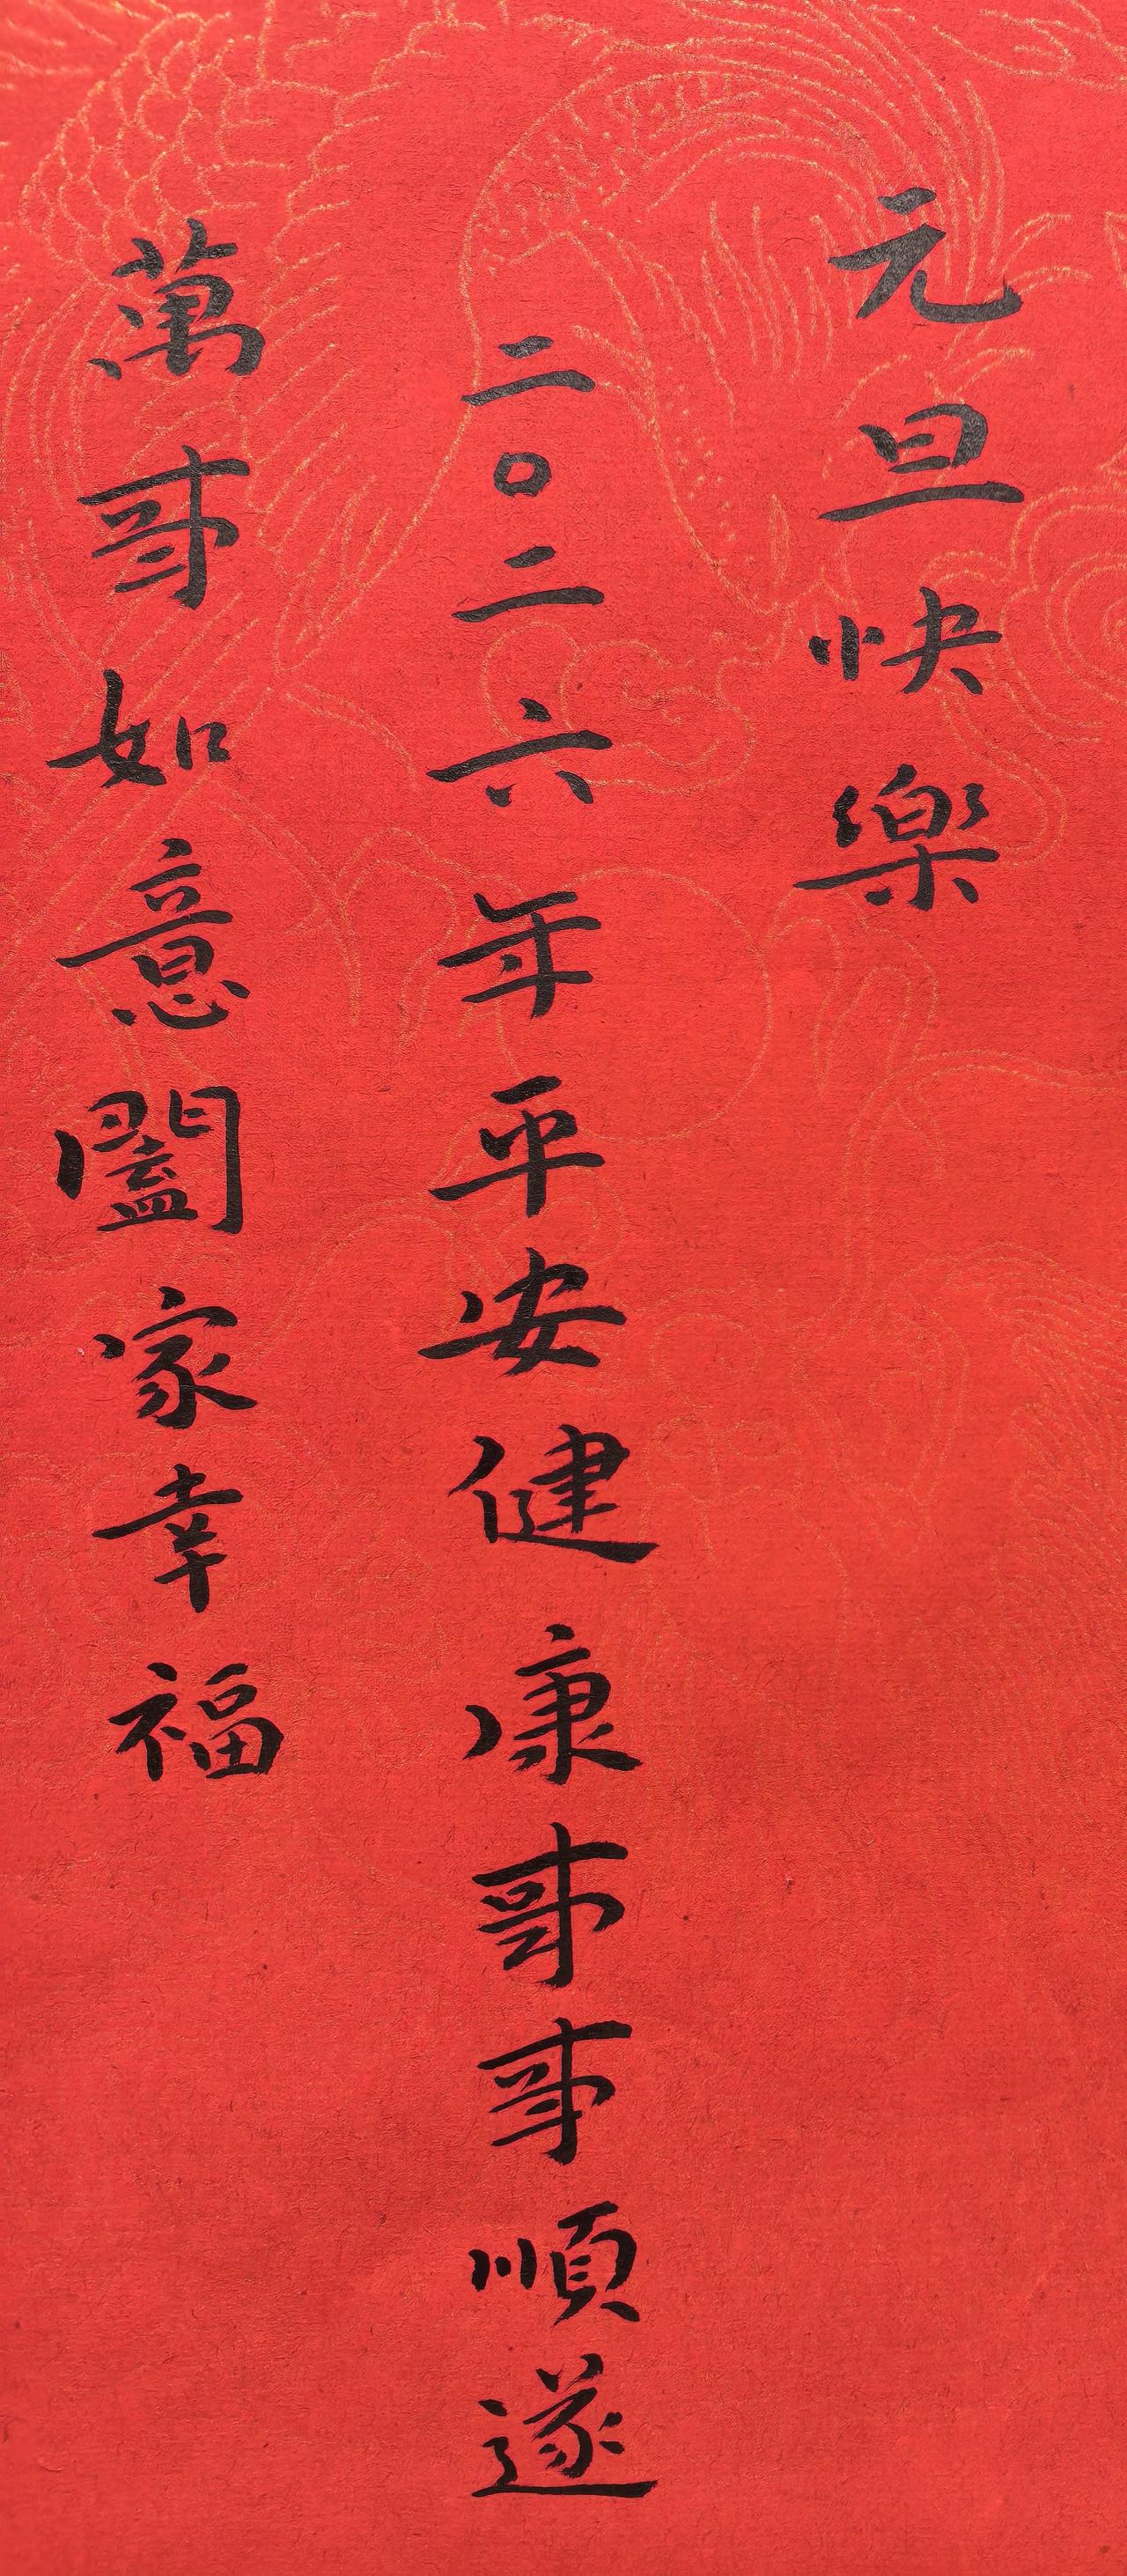 元旦快樂
二〇二六年平安健康事事順遂
萬事如意闔家幸福